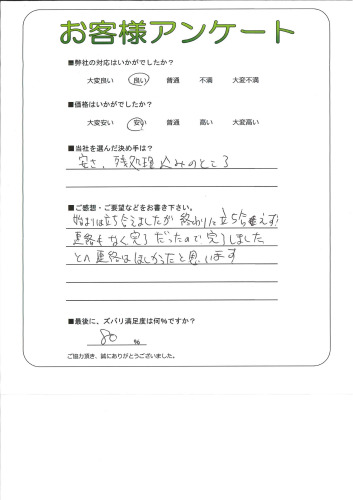 お客様アンケート
■弊社の対応はいかがでしたか?
大変良い 良い 普通 不満 大変不満
■価格はいかがでしたか?
大変安い 安い 普通 高い 大変高い
■当社を選んだ決め手は?
安さ、残処理込みのところ
■ご感想・ご要望などをお書き下さい。
始まりは立ち会えましたが終わりに立ち会えず
連絡もなく完了だったので完了しました
と連絡はほしかったと思います
■最後に、ズバリ満足度は何%ですか?
80 %
ご協力頂き、誠にありがとうございました。